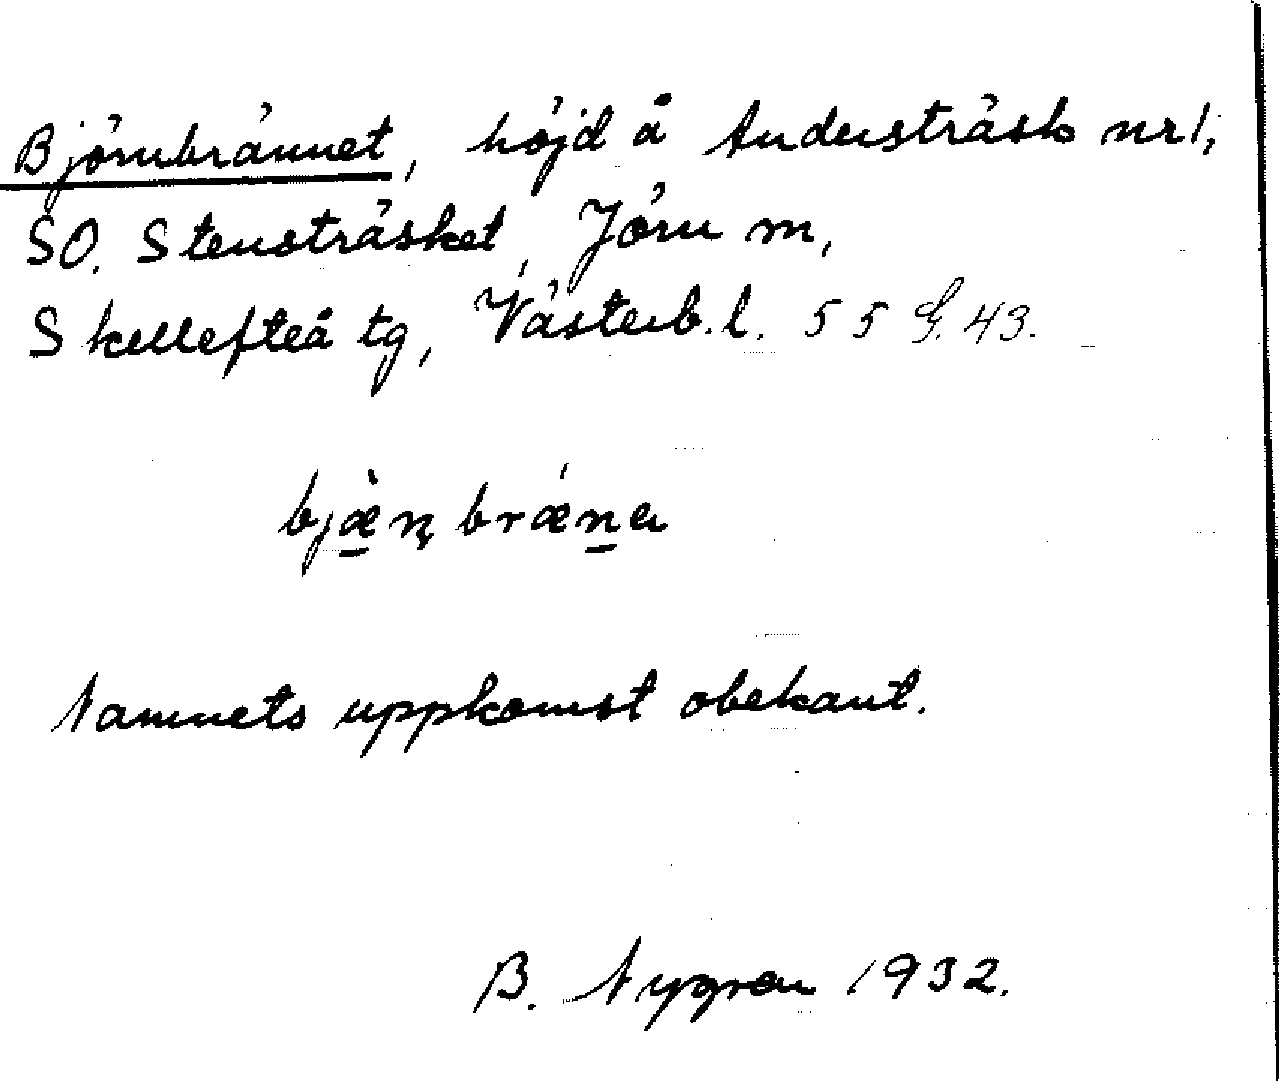 Björnbrännet, höjd å Andersträsk nr 1,
SO. Stensträsket, Jörn sn,
Skellefteå tg, Västerb. l. 55 G. 43.
bjæ̀ṇbrǽna
Namnets uppkomst obekant.
B. Nygren 1932.